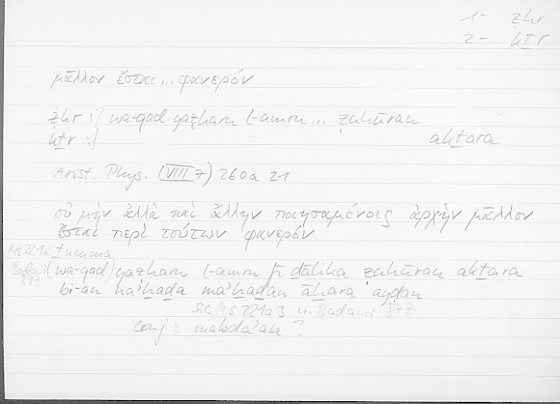 1- ẓhr
2- kṯr
μᾶλλον ἔσται ... φανερόν
ẓhr :] wa-qad yaẓharu l-amru ... ẓuhūran
kṯr :] akṯara
Arist. Phys. (VIII 7) 260a 21
οὐ μὴν ἀλλὰ καὶ ἄλλην ποιησαμένοις ἀρχὴν μᾶλλον
ἔσται περὶ τούτων φανερόν
Hs 221a ṯumma
Badawi 877 (wa-qad) yaẓharu l-amru fī ḏālika ẓuhūran akṯara
bi-an naʾḫuḏa maʾḫaḏan āḫara ayḍan
sic Hs 221a3 u. Badawi 877
conj: mabdaʾan ?